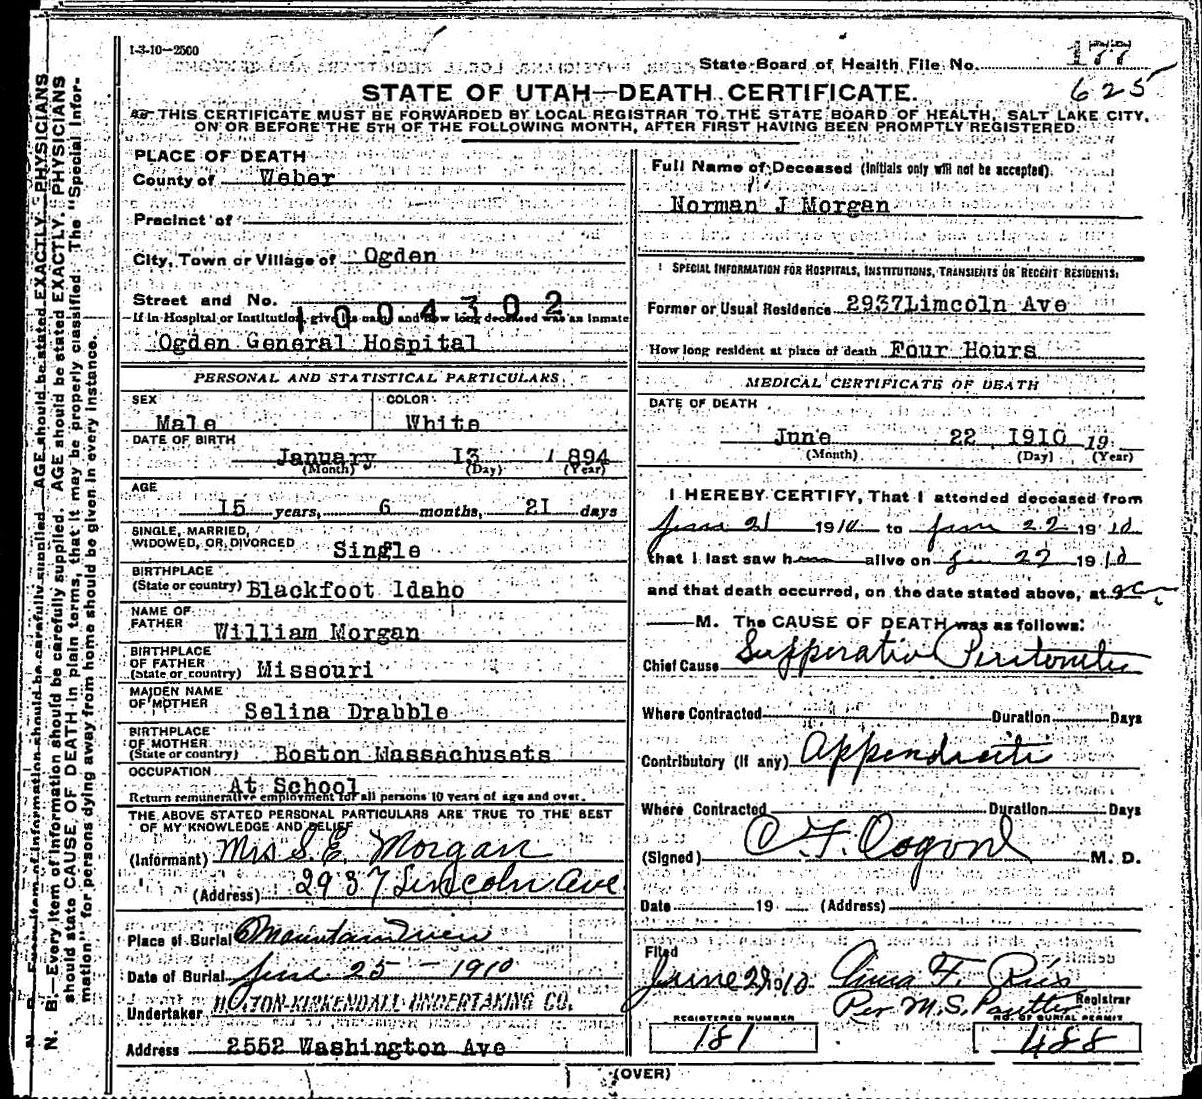 1-3-10-2500
State Board of Health File No. 177
625
STATE OF UTAH—DEATH CERTIFICATE.
THIS CERTIFICATE MUST BE FORWARDED BY LOCAL REGISTRAR TO THE STATE BOARD OF HEALTH, SALT LAKE CITY,
ON OR BEFORE THE 5TH OF THE FOLLOWING MONTH, AFTER FIRST HAVING BEEN PROMPTLY REGISTERED.
PLACE OF DEATH
County of Weber
Precinct of
City, Town or Village of Ogden
Street and No.
1004302
If in Hospital or Institution, give its name and how long deceased was an inmate
Ogden General Hospital
PERSONAL AND STATISTICAL PARTICULARS.
SEX
Male
COLOR
White
DATE OF BIRTH
January 13 1894
(Month) (Day) (Year)
AGE
15 years, 6 months, 21 days
SINGLE, MARRIED,
WIDOWED, OR DIVORCED Single
BIRTHPLACE
(State or country) Blackfoot Idaho
NAME OF
FATHER William Morgan
BIRTHPLACE
OF FATHER
(State or country) Missouri
MAIDEN NAME
OF MOTHER Selina Drabble
BIRTHPLACE
OF MOTHER
(State or country) Boston Massachusets
OCCUPATION At School
Return remunerative employment for all persons 10 years of age and over.
THE ABOVE STATED PERSONAL PARTICULARS ARE TRUE TO THE BEST
OF MY KNOWLEDGE AND BELIEF
(Informant) Mrs S. E. Morgan
(Address) 2937 Lincoln Ave
Place of Burial Mountain View
Date of Burial June 25 - 1910
Undertaker KIRKENDALL UNDERTAKING CO.
Address 2552 Washington Ave
Full Name of Deceased (Initials only will not be accepted).
Norman J Morgan
SPECIAL INFORMATION FOR HOSPITALS, INSTITUTIONS, TRANSIENTS OR RECENT RESIDENTS:
Former or Usual Residence 2937Limcoln Ave
How long resident at place of death Four Hours
MEDICAL CERTIFICATE OF DEATH
DATE OF DEATH
June 22 1910 19
(Month) (Day) (Year)
I HEREBY CERTIFY, That I attended deceased from
June 21 1910 to June 22 1910
that I last saw h alive on 22 1910
and that death occurred, on the date stated above, at
M. The CAUSE OF DEATH was as follows:
Chief Cause Supperative Peritonitis
Where Contracted Duration Days
Contributory (if any) Appendicitis
Where Contracted Duration Days
(Signed) M. D.
Date 19 (Address)
Filed
June 1910
Registrar
Per M. S.
REGISTERED NUMBER
181
NO. OF BURIAL PERMIT
488
(OVER)
N. B.—Every item of information should be carefully supplied. AGE should be stated EXACTLY. PHYSICIANS
should state CAUSE OF DEATH in plain terms, that it may be properly classified. The "Special Infor-
mation" for persons dying away from home should be given in every instance.